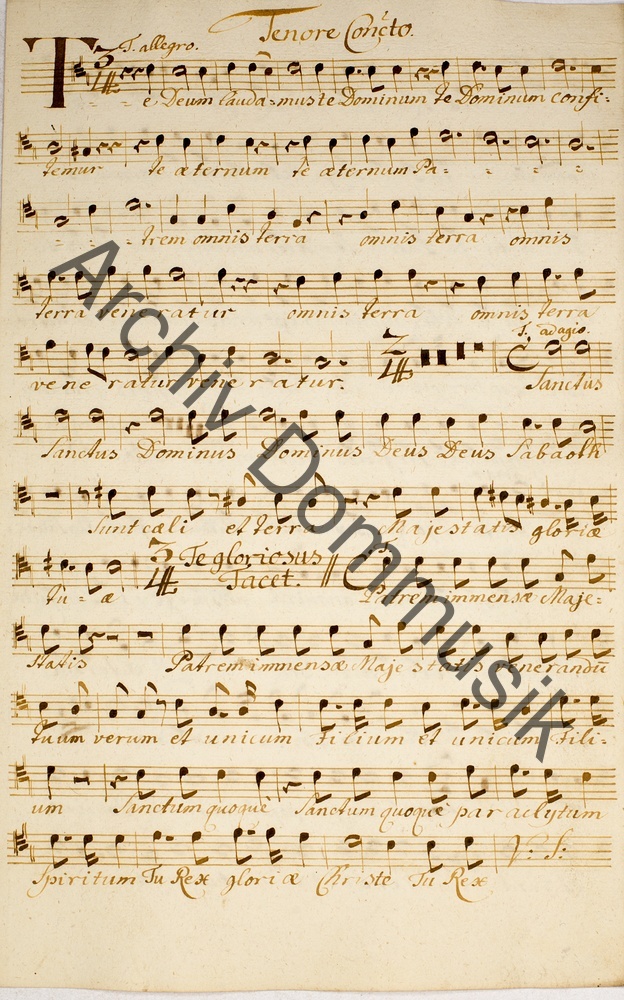 Tenore Concto.
T. allegro.
3/4
Te Deum lauda-mus te Dominum te Dominum confi-
temur te æternum te æternum Pa-
trem omnis terra omnis terra omnis
terra veneratur omnis terra omnis terra
veneratur veneratur. 2/4 T. adagio. Sanctus
Sanctus Dominus Dominus Deus Deus Sabaoth
Sunt cæli et terra Majestatis gloriæ
tu-æ 3/4 Te gloriosus Tacet. Patrem immensæ Maje-
statis Patrem immensæ Majestatis venerandū
tuum verum et unicum Filium et unicum Fili-
um Sanctum quoquè Sanctum quoquè paraclytum
Spiritum Tu Rex gloriæ Christe Tu Rex V: S:
Archiv Dommusik